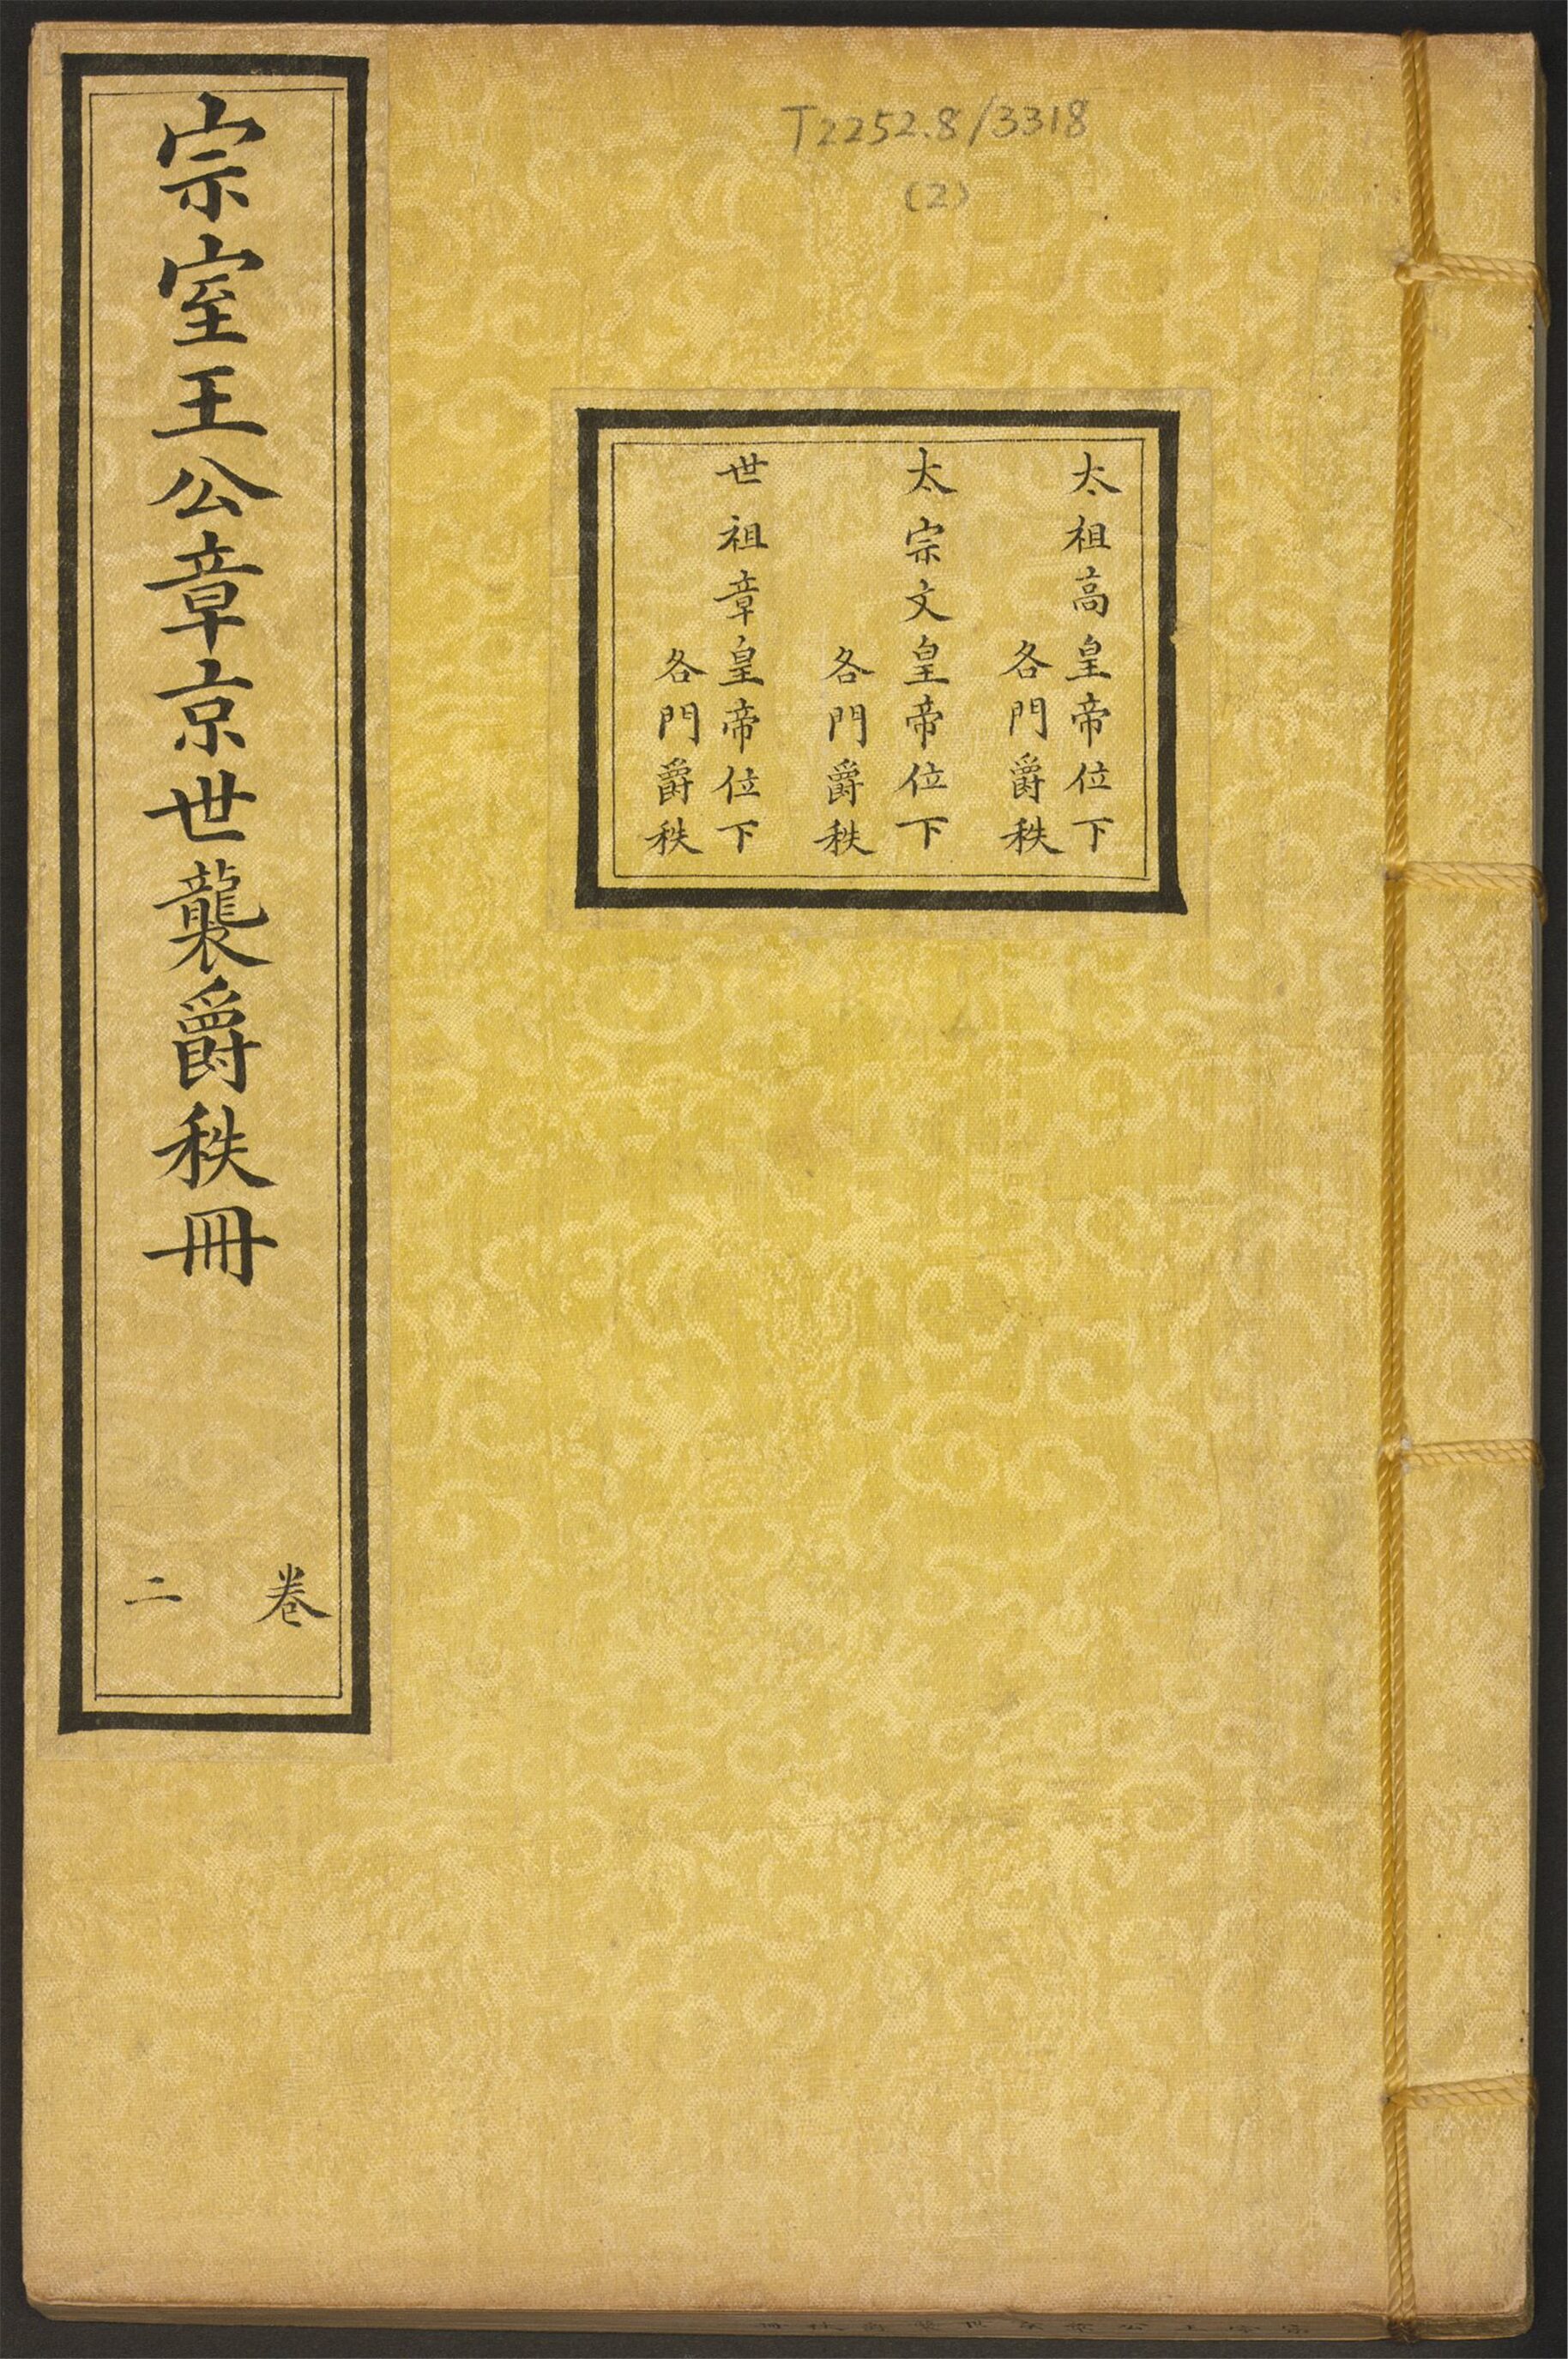 T2252.8/3318
(2)
太祖高皇帝位下
各門爵秩
太宗文皇帝位下
各門爵秩
世祖章皇帝位下
各門爵秩
宗室王公章京世襲爵秩冊
卷二